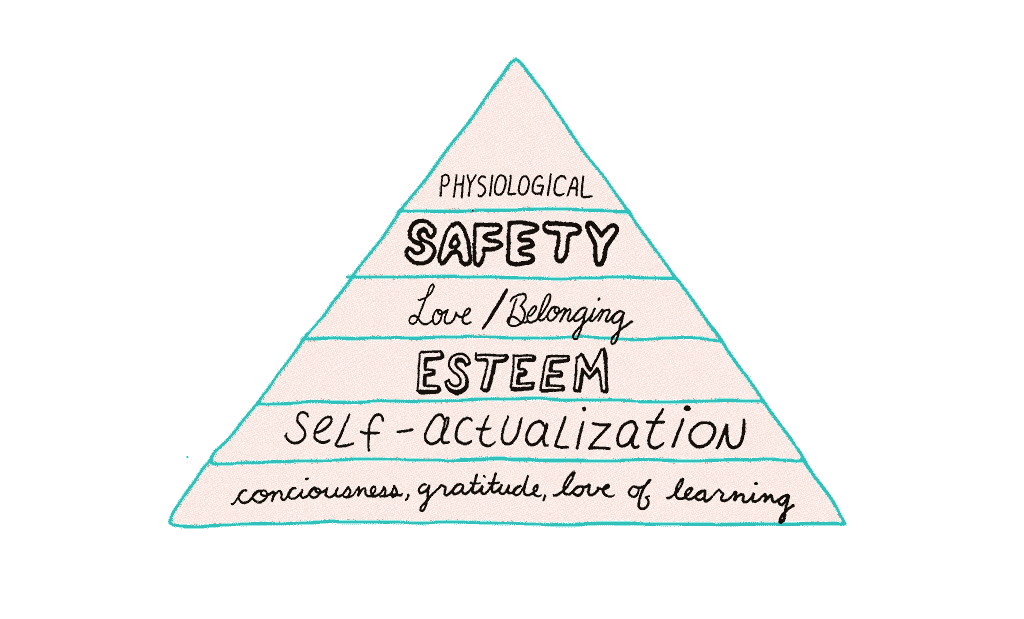 PHYSIOLOGICAL
SAFETY
Love / Belonging
ESTEEM
self-actualization
conciousness, gratitude, love of learning